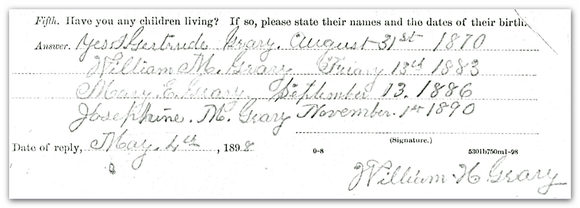 Fifth. Have you any children living? If so, please state their names and the dates of their birth.
Answer. Yes Gertrude Geary. August 31st 1870
William M. Geary 13th 1883
Mary E. Geary September 13. 1886
Josephine. M. Geary November. 1st 1890
(Signature.)
Date of reply, May 4th, 1898
0-8 5301b750m1-98
William H Geary